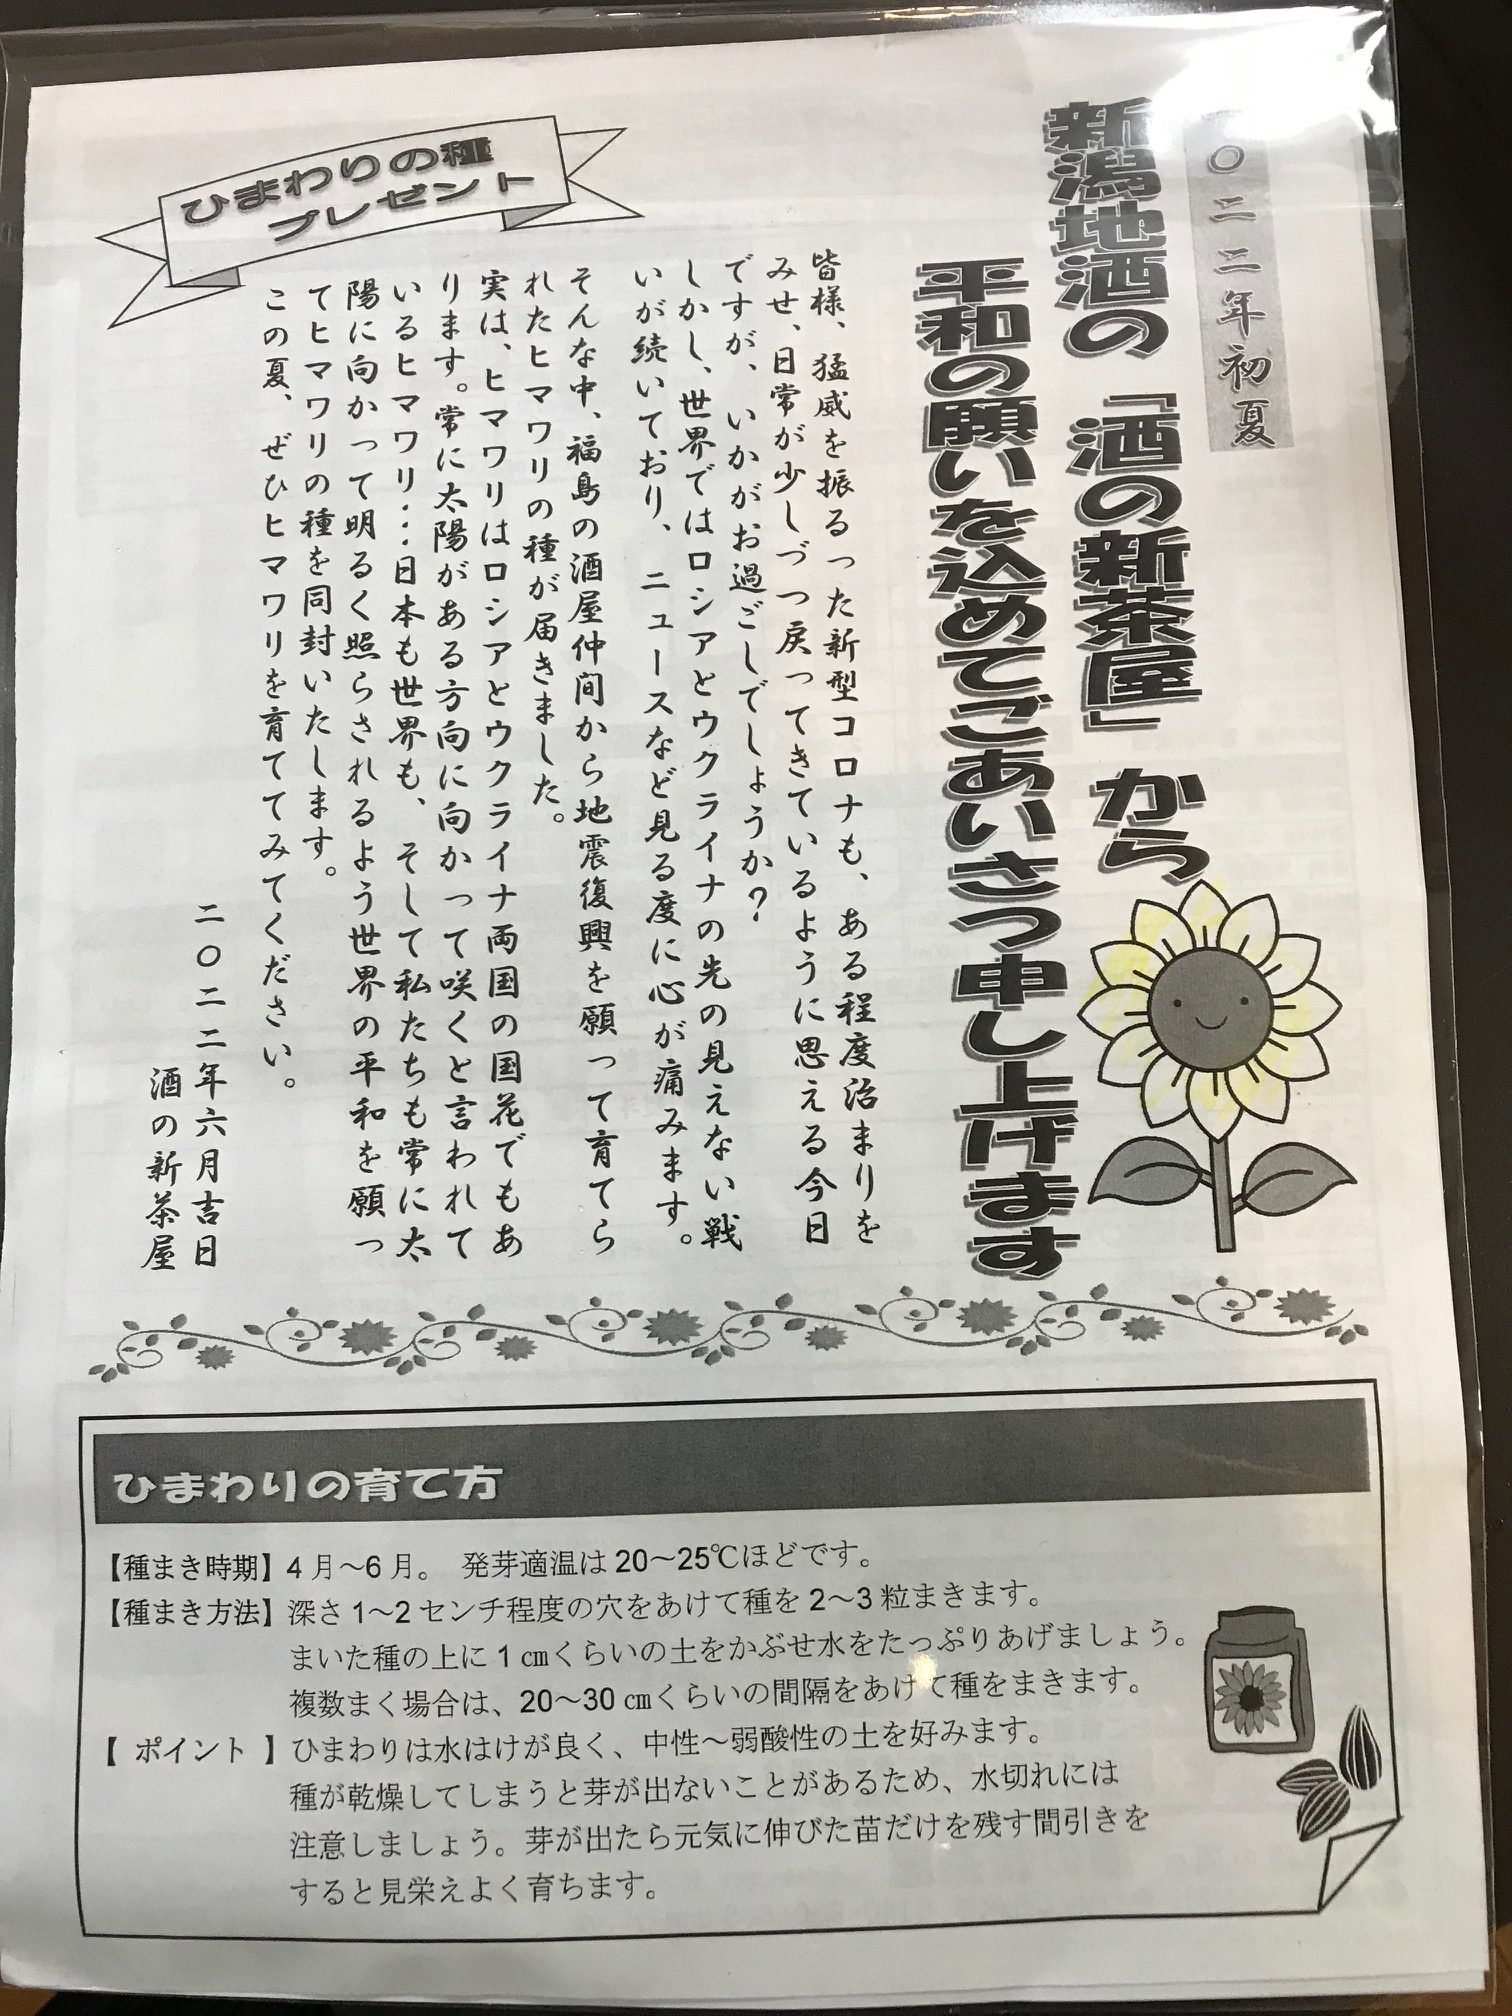 〇二二年初夏
新潟地酒の「酒の新茶屋」から
平和の願いを込めてごあいさつ申し上げます
皆様、猛威を振るった新型コロナも、ある程度治まりを
みせ、日常が少しづつ戻ってきているように思える今日
ですが、いかがお過ごしでしょうか?
しかし、世界ではロシアとウクライナの先の見えない戦
いが続いており、ニュースなど見る度に心が痛みます。
そんな中、福島の酒屋仲間から地震復興を願って育てら
れたヒマワリの種が届きました。
実は、ヒマワリはロシアとウクライナ両国の国花でもあ
ります。常に太陽がある方向に向かって咲くと言われて
いるヒマワリ…日本も世界も、そして私たちも常に太
陽に向かって明るく照らされるよう世界の平和を願っ
てヒマワリの種を同封いたします。
この夏、ぜひヒマワリを育ててみてください。
二〇二二年六月吉日
酒の新茶屋
ひまわりの種
プレゼント
ひまわりの育て方
【種まき時期】4月~6月。 発芽適温は20~25℃ほどです。
【種まき方法】深さ1~2センチ程度の穴をあけて種を2~3粒まきます。
まいた種の上に1㎝くらいの土をかぶせ水をたっぷりあげましょう。
複数まく場合は、20~30㎝くらいの間隔をあけて種をまきます。
【 ポイント 】ひまわりは水はけが良く、中性~弱酸性の土を好みます。
種が乾燥してしまうと芽が出ないことがあるため、水切れには
注意しましょう。芽が出たら元気に伸びた苗だけを残す間引きを
すると見栄えよく育ちます。